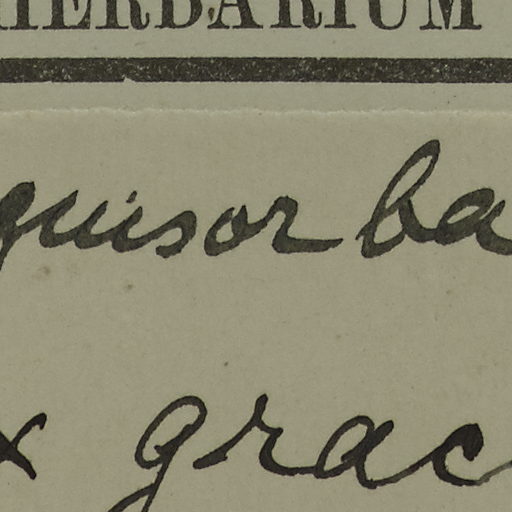 HERBARIUM
guisorba
x grac